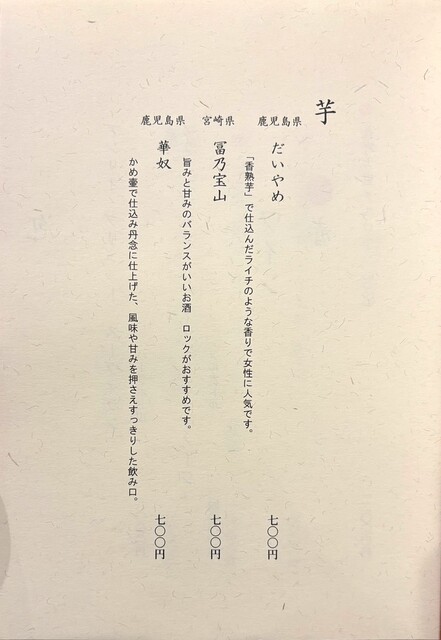 芋
鹿児島県
だいやめ
「香熟芋」で仕込んだライチのような香りで女性に人気です。
七〇〇円
宮崎県
冨乃宝山
旨みと甘みのバランスがいいお酒　ロックがおすすめです。
七〇〇円
鹿児島県
華奴
かめ壷で仕込み丹念に仕上げた、風味や甘みを押さえすっきりした飲み口。
七〇〇円